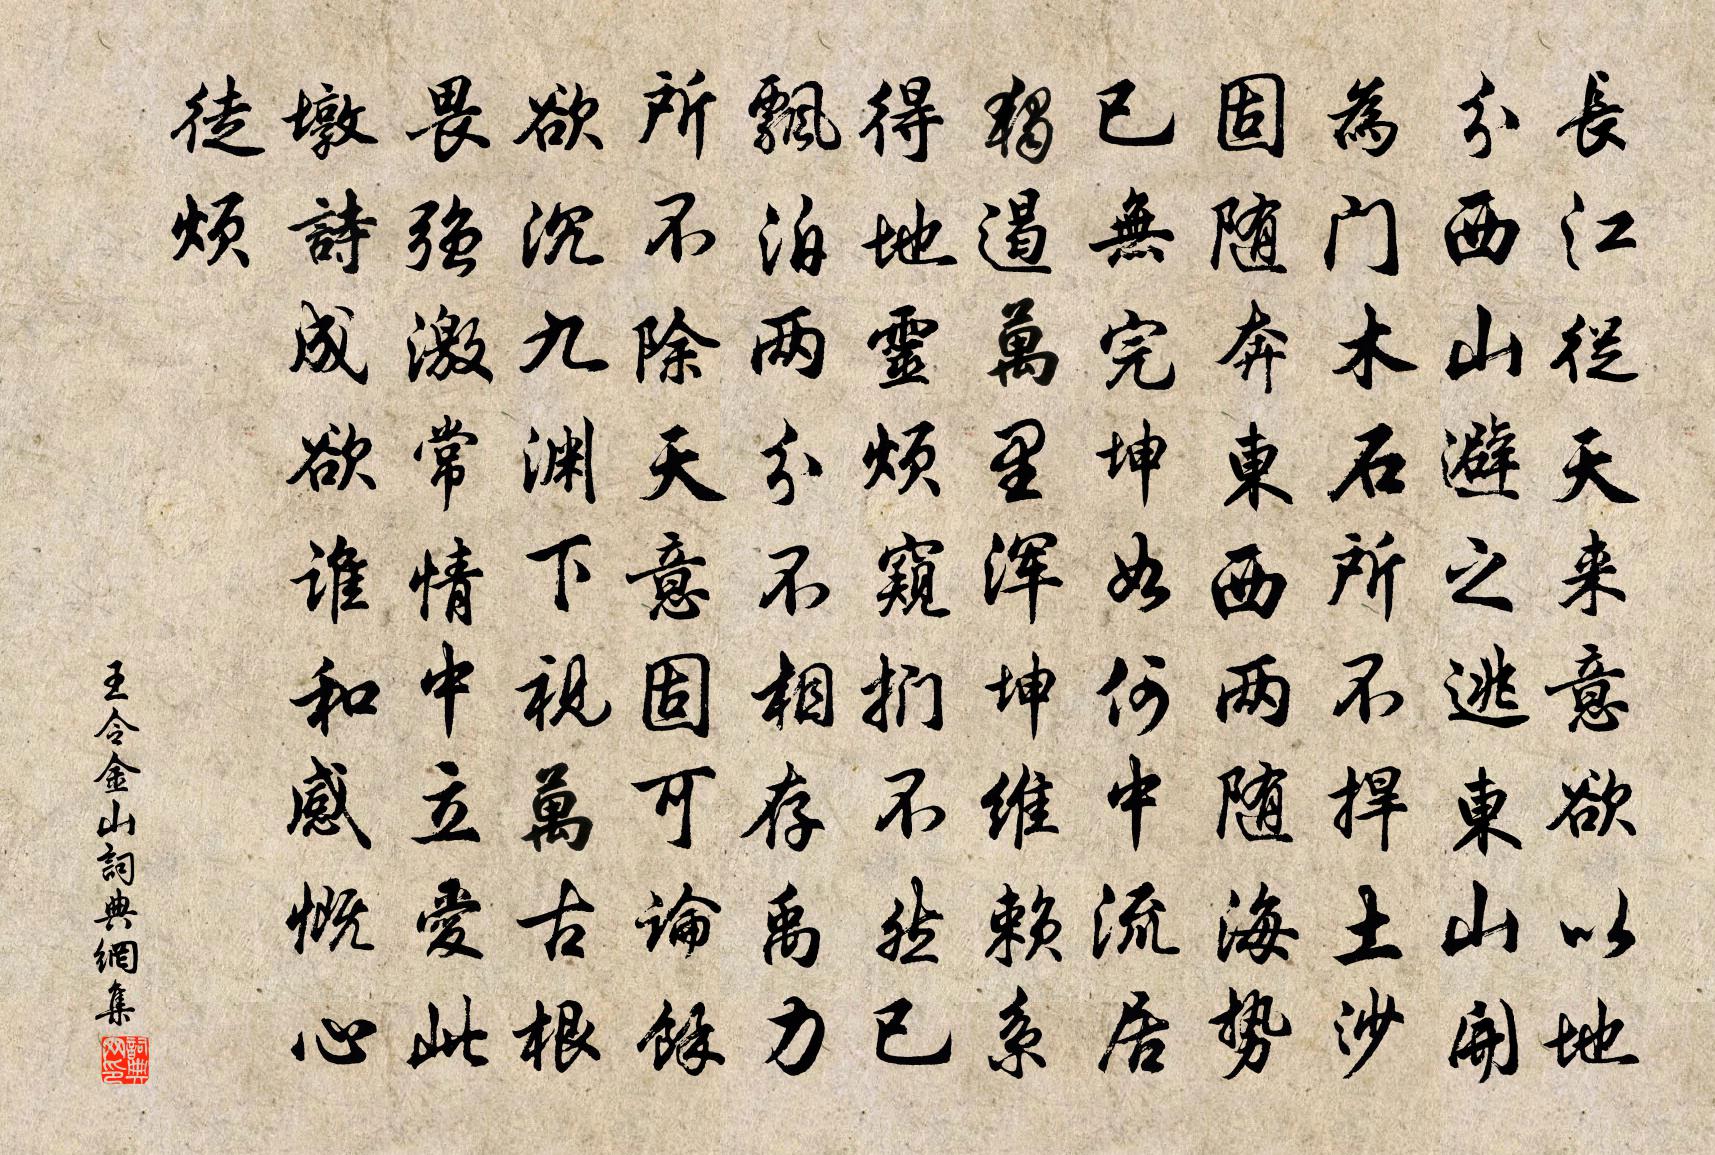 長江從天来意欲以地
分西山避之逃東山開
為門木石所不捍土沙
固随奔東西两随海勢
已無完坤如何中流居
獨遏萬里渾坤維賴系
得地靈煩窺捫不然已
飄泊两分不相存禹力
所不除天意固可論餘
欲沉九渊下視萬古根
畏强激常情中立愛此
墩詩成欲誰和感慨心
徒煩
王令金山詞典網集
詞典网印